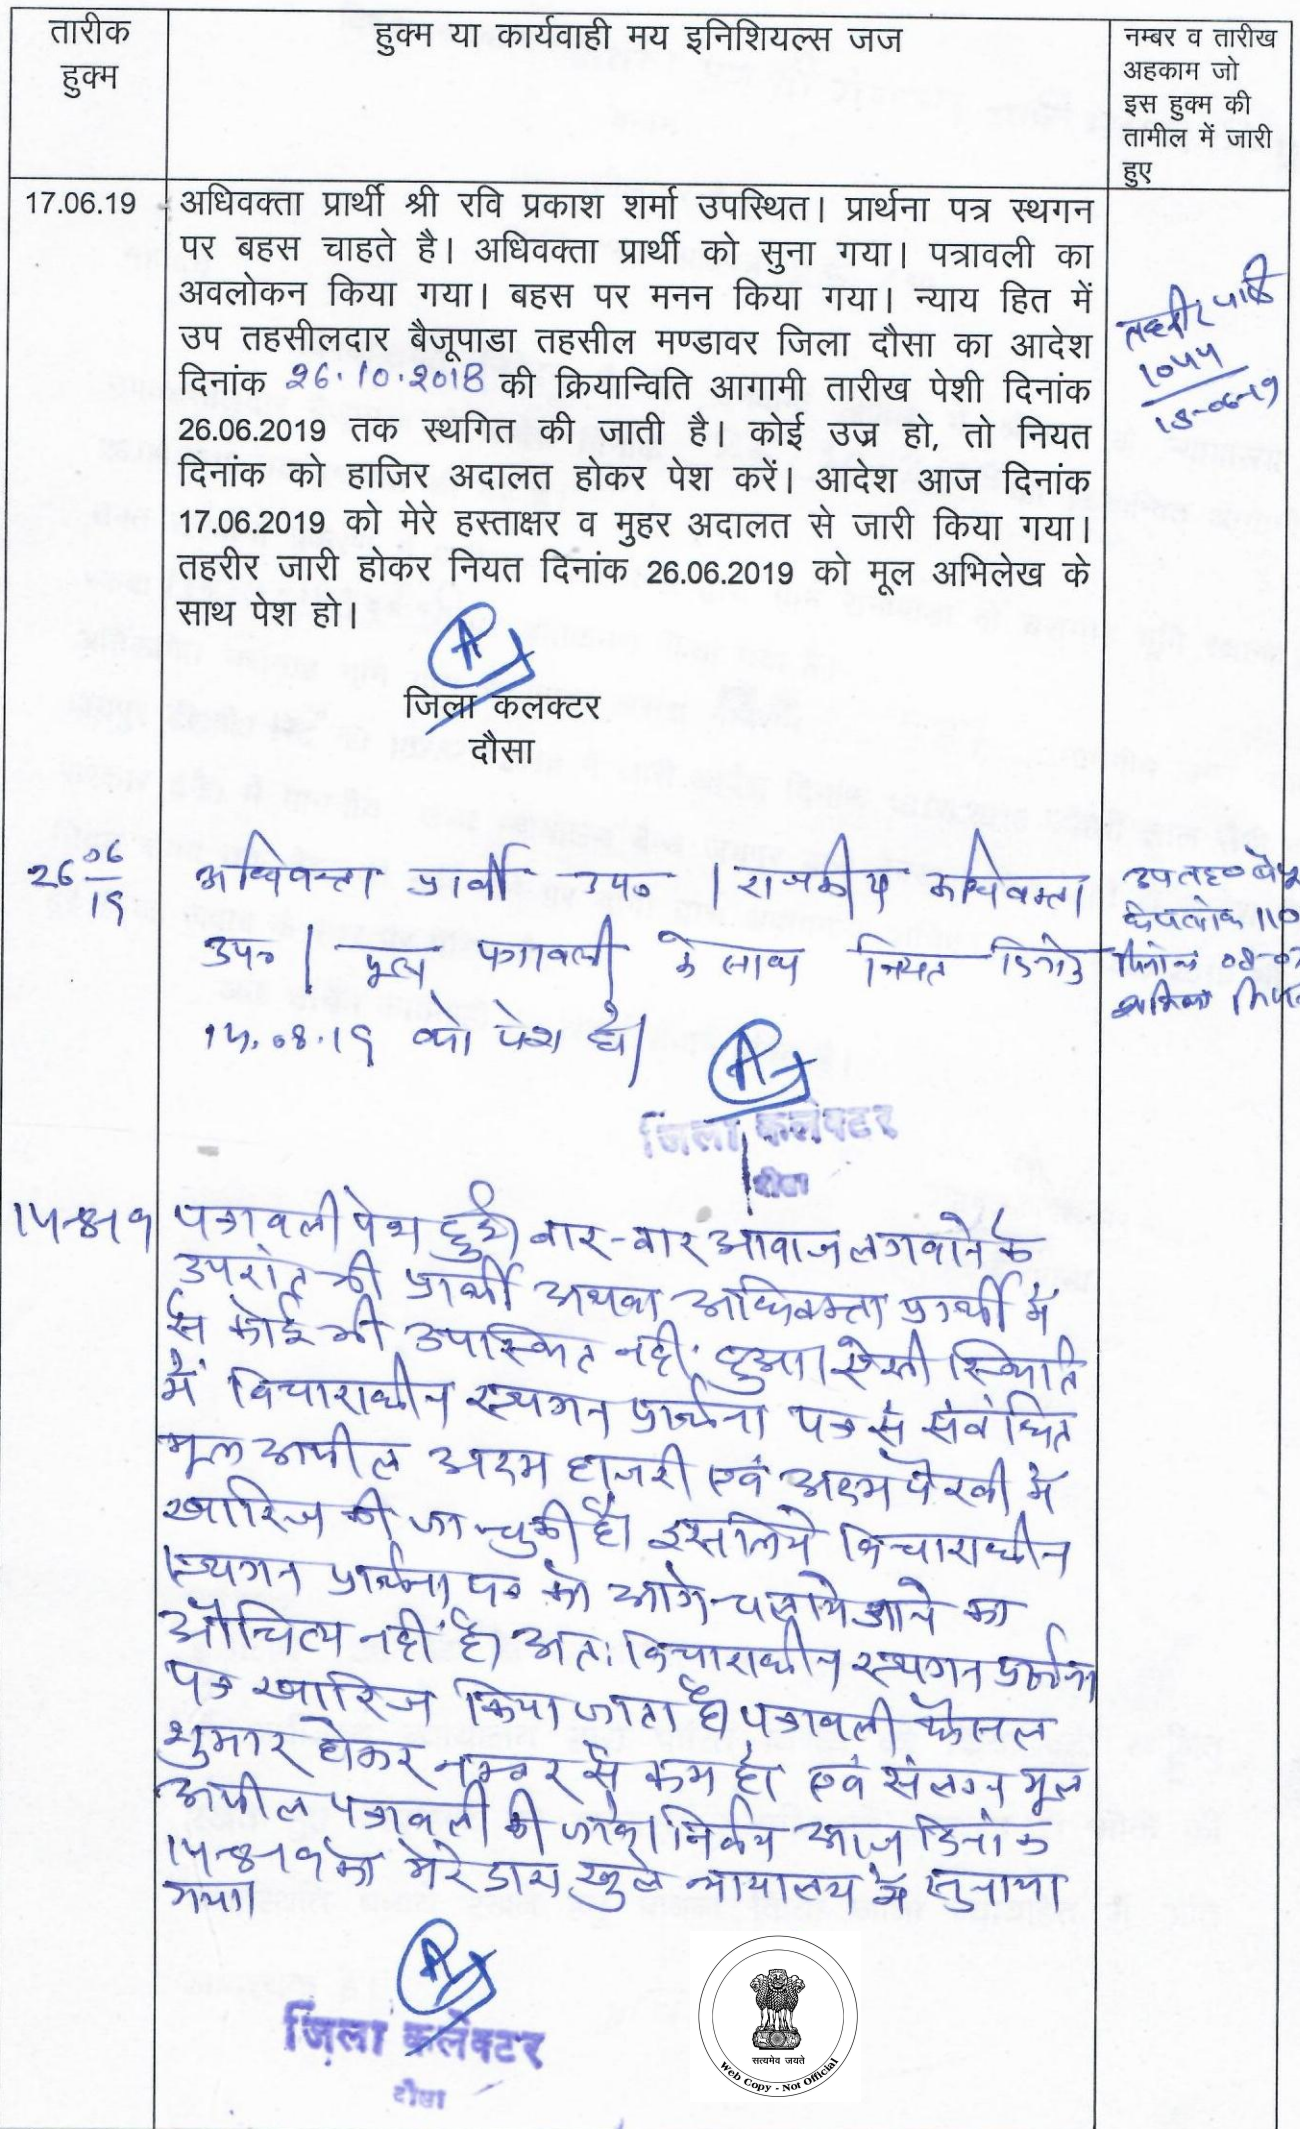 तारीक
हुक्म
हुक्म या कार्यवाही मय इनिशियल्स जज
नम्बर व तारीख
अहकाम जो
इस हुक्म की
तामील में जारी
हुए
17.06.19
अधिवक्ता प्रार्थी श्री रवि प्रकाश शर्मा उपस्थित। प्रार्थना पत्र स्थगन
पर बहस चाहते है। अधिवक्ता प्रार्थी को सुना गया। पत्रावली का
अवलोकन किया गया। बहस पर मनन किया गया। न्याय हित में
उप तहसीलदार बैजूपाडा तहसील मण्डावर जिला दौसा का आदेश
दिनांक 26.10.2018 की क्रियान्विति आगामी तारीख पेशी दिनांक
26.06.2019 तक स्थगित की जाती है। कोई उज्र हो, तो नियत
दिनांक को हाजिर अदालत होकर पेश करें। आदेश आज दिनांक
17.06.2019 को मेरे हस्ताक्षर व मुहर अदालत से जारी किया गया।
तहरीर जारी होकर नियत दिनांक 26.06.2019 को मूल अभिलेख के
साथ पेश हो।
तहरीर जारी
1044
18-06-19
जिला कलक्टर
दौसा
26 06
19
अधिवक्ता प्रार्थी उप० । राजकीय अधिवक्ता
उप० । मूल पत्रावली के साथ नियत दिनांक
14.08.19 को पेश हो।
जिला कलेक्टर
दौसा
14-8-19
पत्रावली पेश हुई। बार-बार आवाज लगवाने के
उपरांत भी प्रार्थी अथवा अधिवक्ता प्रार्थी में
से कोई भी उपस्थित नहीं हुआ। ऐसी स्थिति
में विचाराधीन स्थगन प्रार्थना पत्र से संबंधित
मूल अपील अदम हाजरी एवं अदम पैरवी में
खारिज की जा चुकी है। इसलिये विचाराधीन
स्थगन प्रार्थना पत्र को आगे चलाये जाने का
औचित्य नहीं है। अतः विचाराधीन स्थगन प्रार्थना
पत्र खारिज किया जाता है। पत्रावली फैसल
शुमार होकर नम्बर से कम हो एवं संलग्न मूल
अपील पत्रावली की जावे। निर्णय आज दिनांक
14-8-19 को मेरे द्वारा खुले न्यायालय में सुनाया
गया।
जिला कलेक्टर
दौसा
सत्यमेव जयते
Web Copy - Not Official